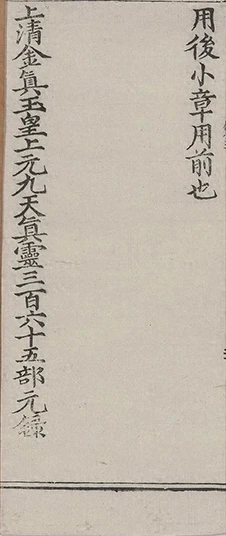 用後小章用前也
上清金真玉皇上元九天真靈三百六十五部元錄